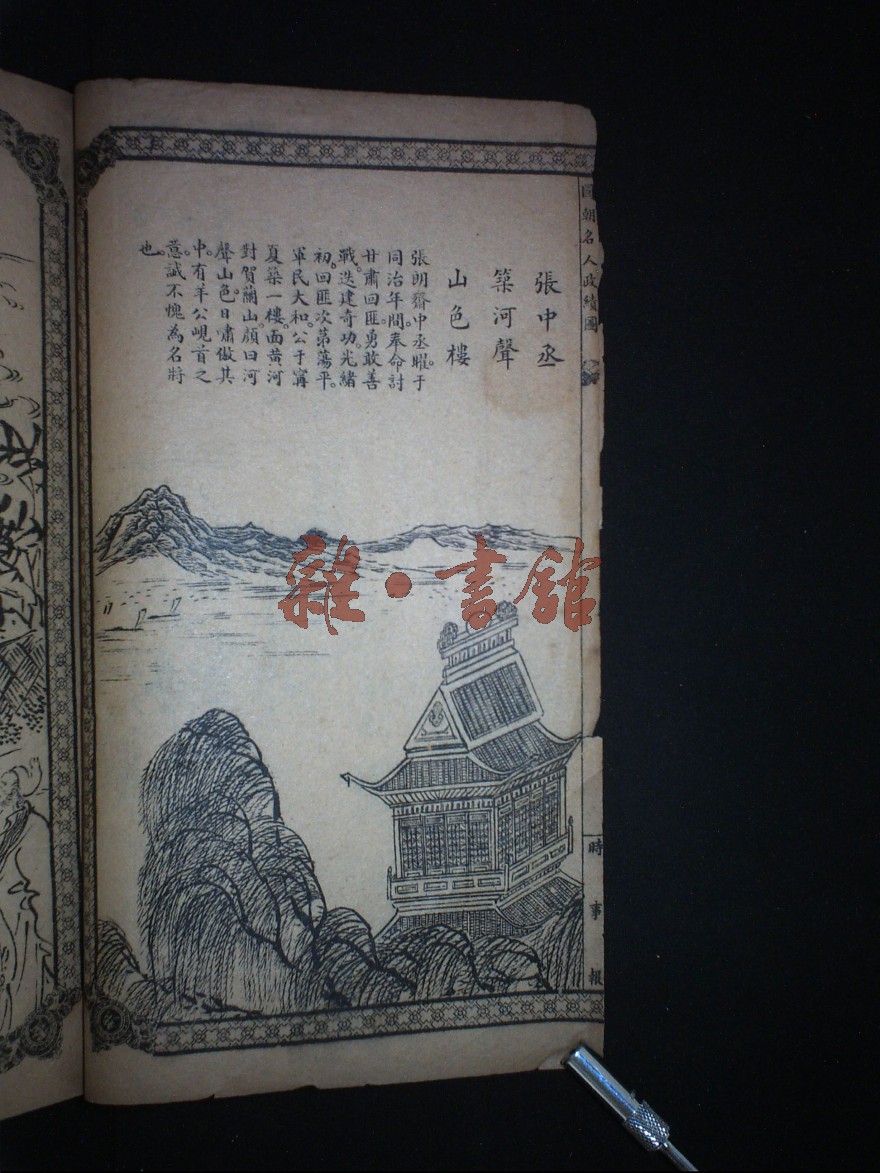 國朝名人政績圖
張中丞
築河聲
山色樓
張朗齋中丞曜。于
同治年間。奉命討
甘肅回匪。勇敢善
戰。迭建奇功。光緒
初。回匪次第蕩平。
軍民大和。公于甯
夏築一樓。面黃河
對賀蘭山。顏曰河
聲山色。日嘯傲其
中。有羊公峴首之
意。誠不愧為名將
也。
時事報
雜·書館